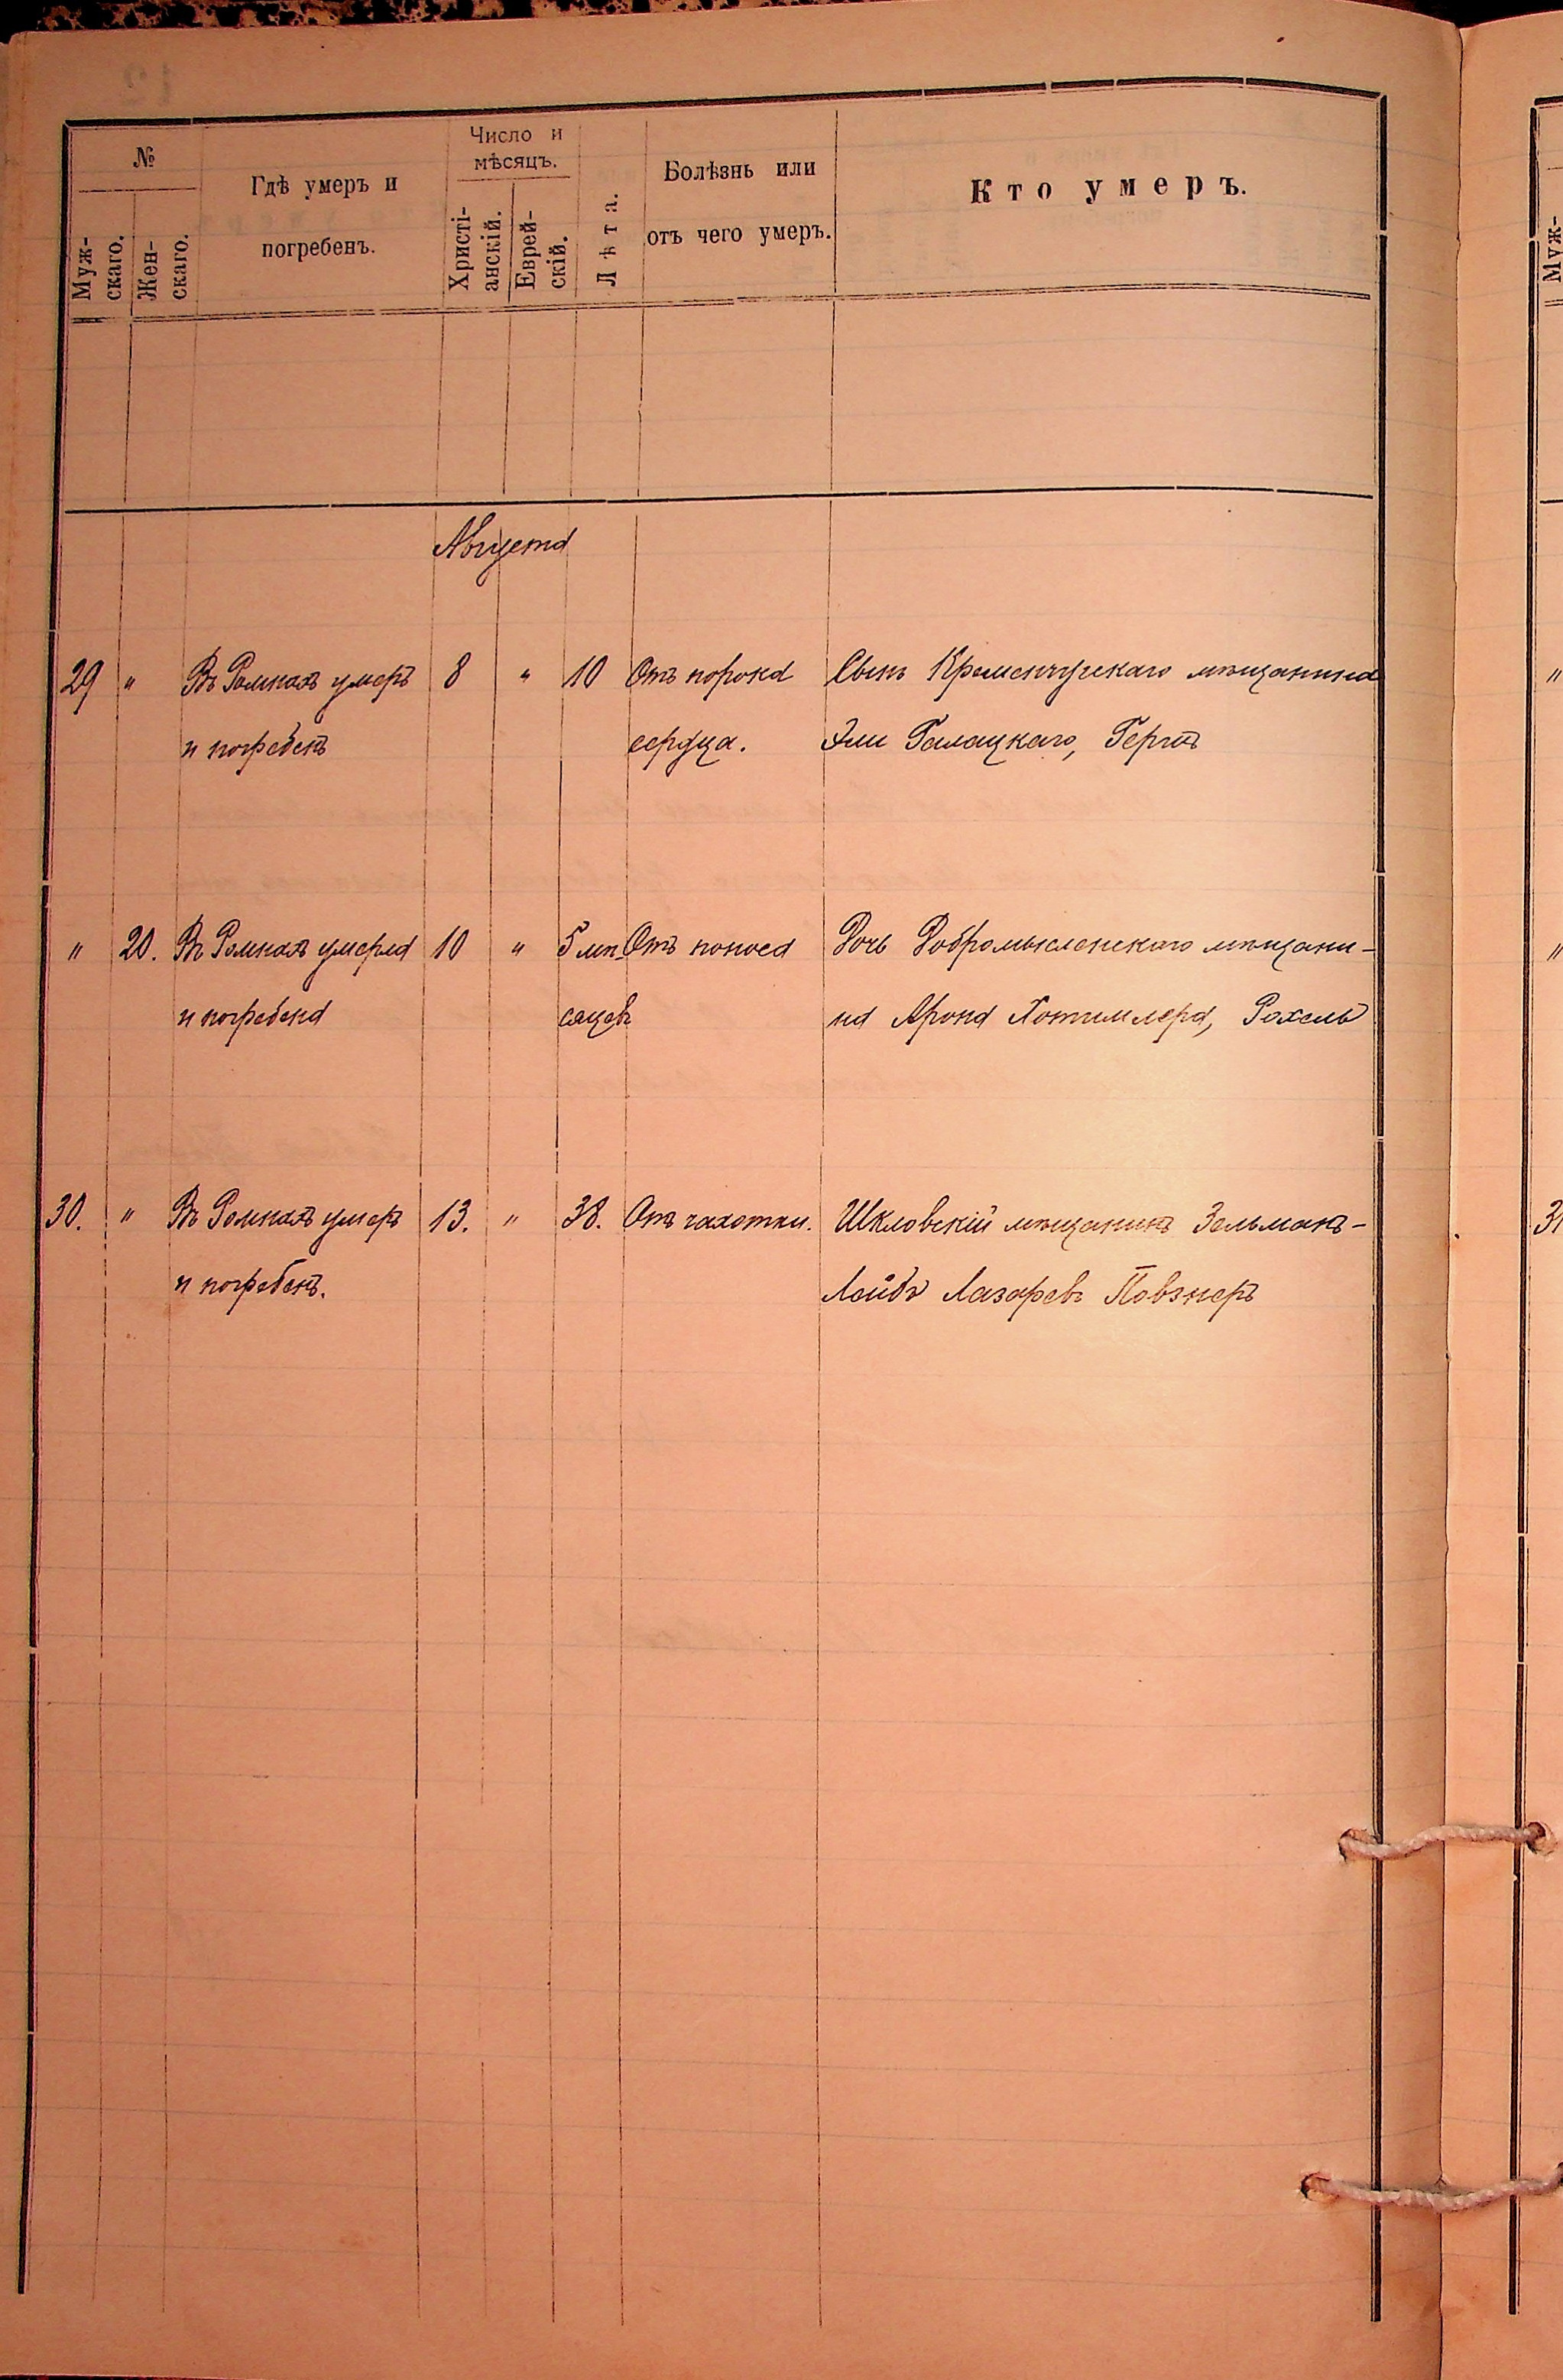 №
Муж-
скаго.
Жен-
скаго.
Гдѣ умеръ и
погребенъ.
Число и
мѣсяцъ.
Христі-
анскій.
Еврей-
скій.
Лѣта.
Болѣзнь или
отъ чего умеръ.
Кто умеръ.
Муж-
Августа
29 " Въ Ромнахъ умеръ 8 " 10 Отъ порока Сынъ Кременчугскаго мѣщанина "
и погребенъ сердца. Эли Галацкаго, Герцъ
" 20. Въ Ромнахъ умерла 10 " 5 мѣ- Отъ поноса Дочь Добромысленскаго мѣщани- "
и погребена сяцевъ на Арона Хотимлера, Рохель
30. " Въ Ромнахъ умеръ 13. " 38. Отъ чахотки. Шкловскій мѣщанинъ Зельманъ- 31
и погребенъ. Лейбъ Лазаревъ Повзнеръ